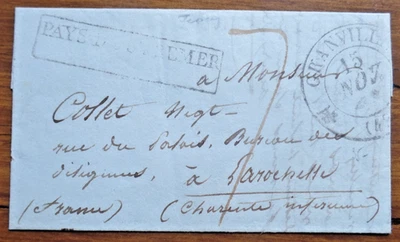 PAYS D'OUTREMER
GRANVILLE
15
NOV.
à Monsieur
Collet Negt
rue du Palais, Bureau des
diligences, à Larochelle
(France) (Charente inferieure)